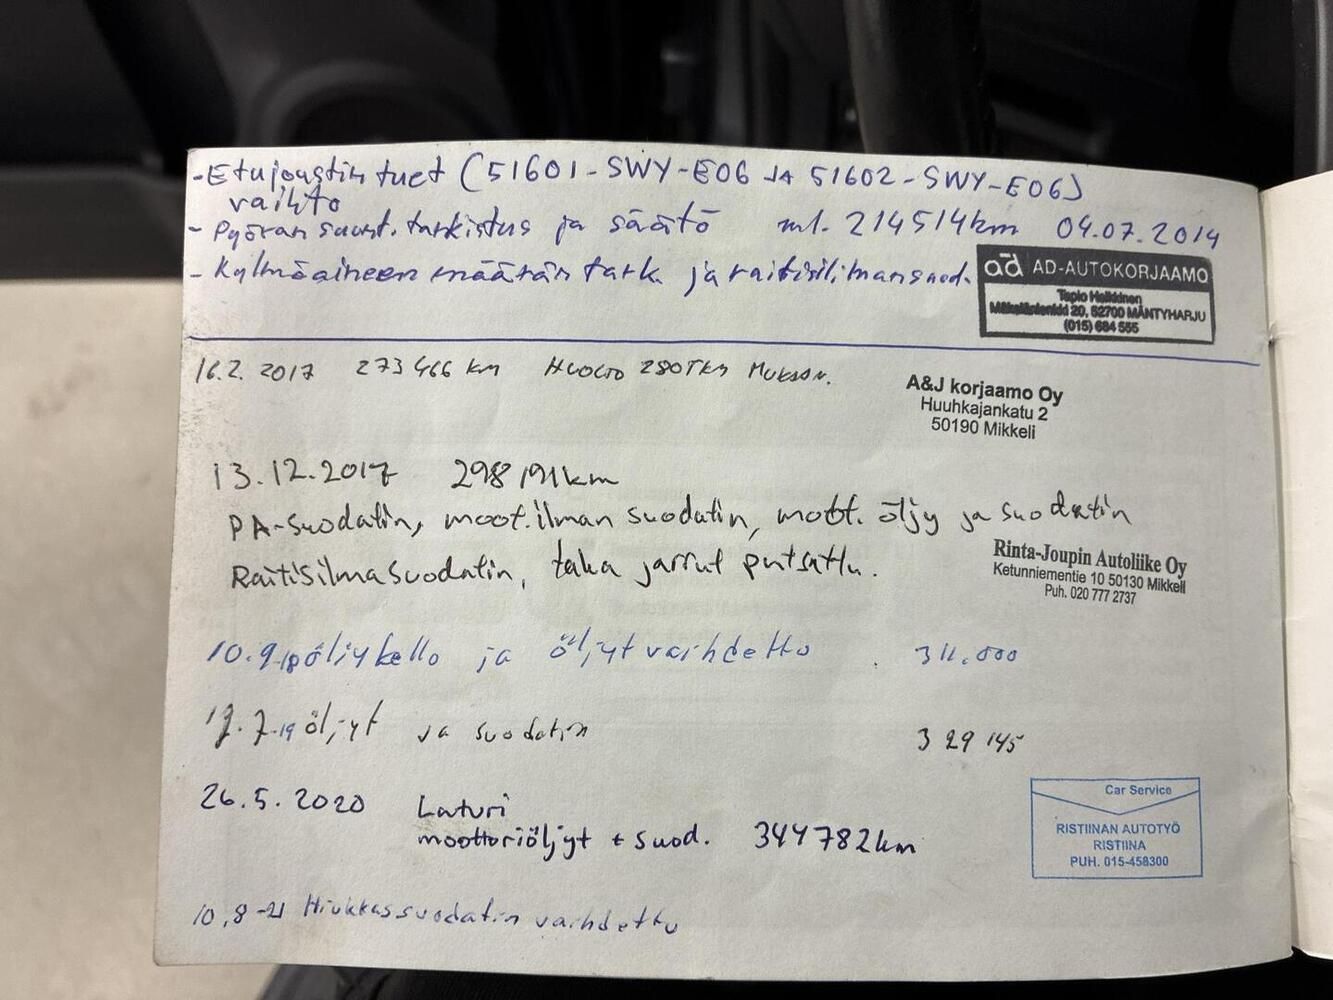 - Etujoustintuet (51601-SWY-E06 JA 51602-SWY-E06)
vaihto
- Pyörän suunt. tarkistus ja säätö ml. 214514km 04.07.2014
- Kylmäaineen määrän tark. ja raitisilmansuod.
ad AD-AUTOKORJAAMO
Tapio Heikkinen
52700 MÄNTYHARJU
(015) 684 555
16.2. 2017 273 466 KM HUOLTO 280TKM MUKAAN.
A&J korjaamo Oy
Huuhkajankatu 2
50190 Mikkeli
13.12.2017 298191km
PA-suodatin, moot.ilman suodatin, moot. öljy ja suodatin
Raitisilmasuodatin, taka jarrut putsattu.
Rinta-Joupin Autoliike Oy
Ketunniementie 10 50130 Mikkeli
Puh. 020 777 2737
10.9.18 öljykello ja öljyt vaihdettu 311.000
17.7.19 öljyt ja suodatin 329 145
26.5.2020 Laturi
moottoriöljyt + suod. 344782km
Car Service
RISTIINAN AUTOTYÖ
RISTIINA
PUH. 015-458300
10.8-21 Hiukkassuodatin vaihdettu